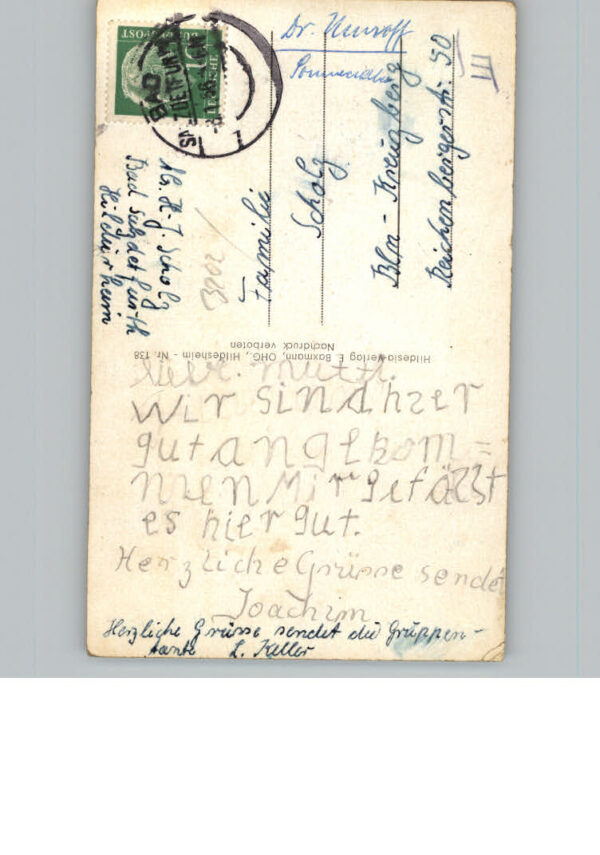 Dr.
BAD
SALZDETFURTH
Familie
Scholz
Bln - Kreuzberg
Reichenbergerstr. 50
III
3202
Ab. H-J. Scholz
Bad Salzdetfurth
Hildesheim
Hildesia-Verlag E. Baxmann, OHG., Hildesheim - Nr. 138
Nachdruck verboten
Liebe Mutti.
Wir sind hier
gut angekom=
men Mir gefällt
es hier gut.
Herzliche Grüsse sendet
Joachim
Herzliche Grüsse sendet die Gruppen-
tante L. Keller